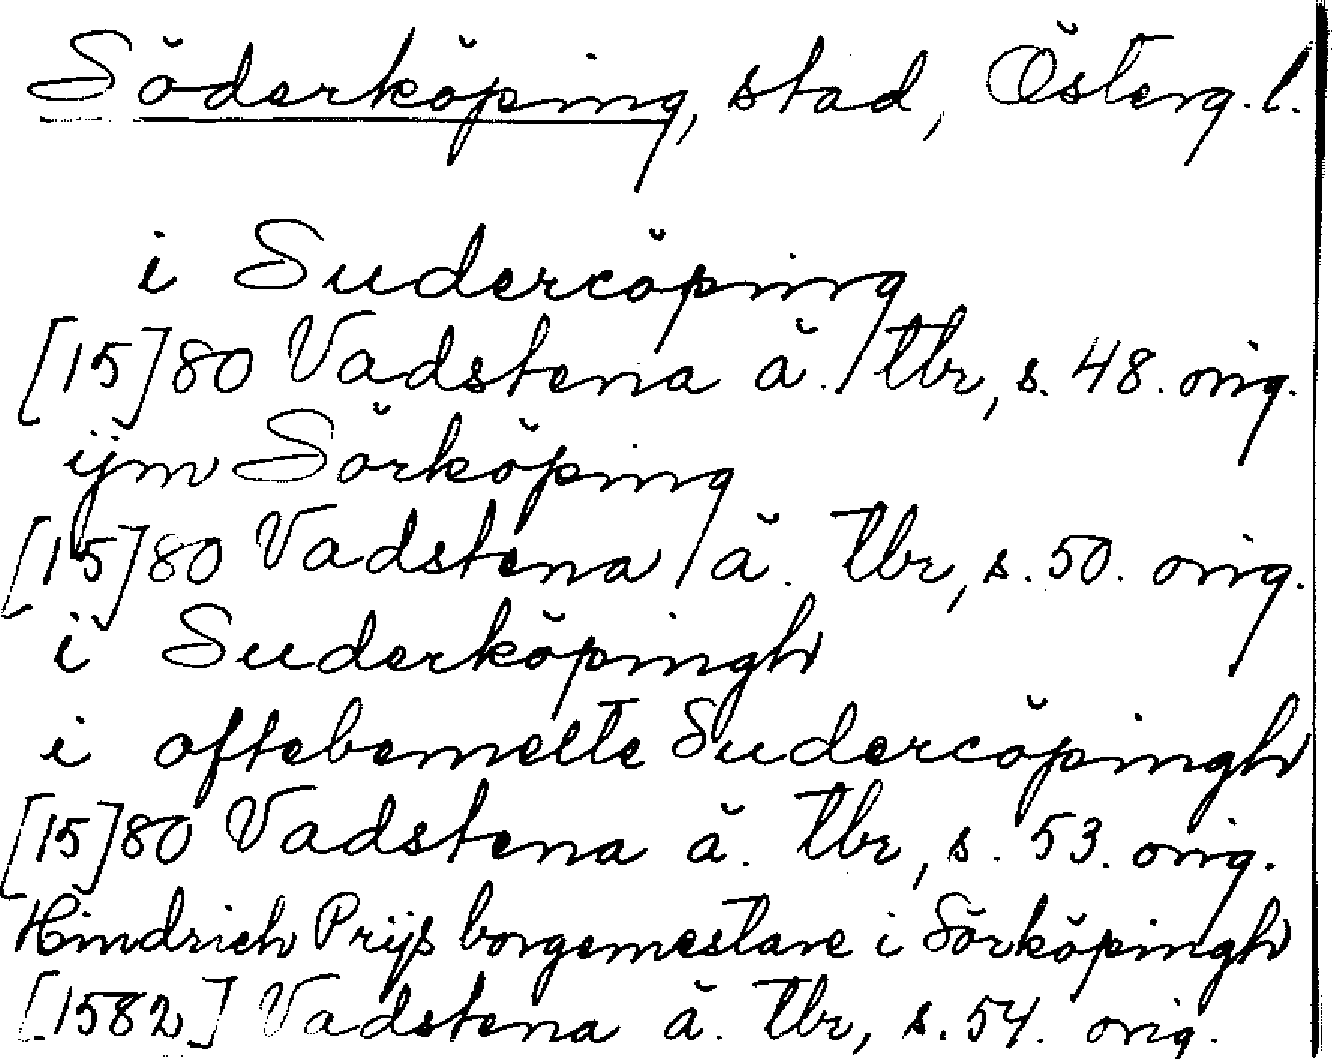 Söderköping, stad, Österg.l.
i Sudercöping
[15]80 Vadstena ä. tbr, s. 48. orig.
ijm Sörköping
[15]80 Vadstena ä. tbr, s. 50. orig.
i Suderköpingh
i oftebemelte Sudercöpingh
[15]80 Vadstena ä. tbr, s. 53. orig.
Hindrich Prijs borgemestare i Sörköpingh
[1582] Vadstena ä. tbr, s. 54. orig.